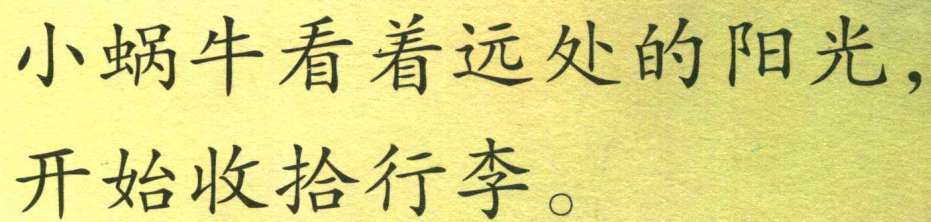 小蜗牛看着远处的阳光，
开始收拾行李。